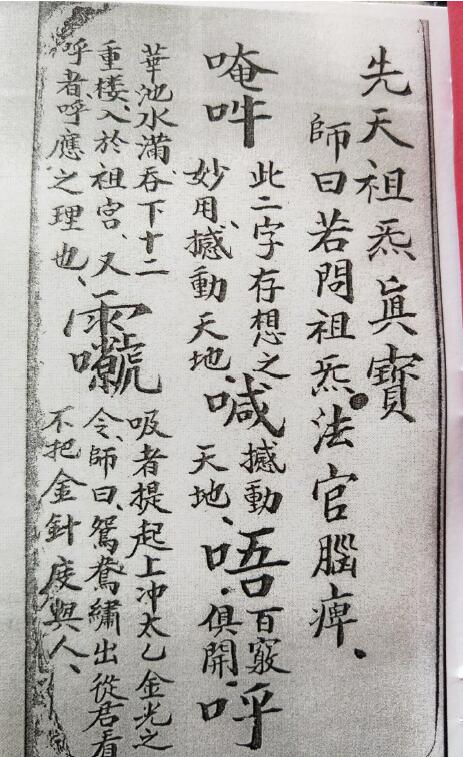 先天祖炁眞寶
師曰若問祖炁法官腦痺、
唵吽
此二字存想之
妙用、撼動天地、
喊
撼動
天地、
唔
百竅
俱開、
呼
華池水滿、吞下十二
重楼、入於祖宮、又
呼者呼應之理也、
吸者提起上冲太乙金光之
令、師曰、鴛鴦繡出從君看
不把金針度與人、